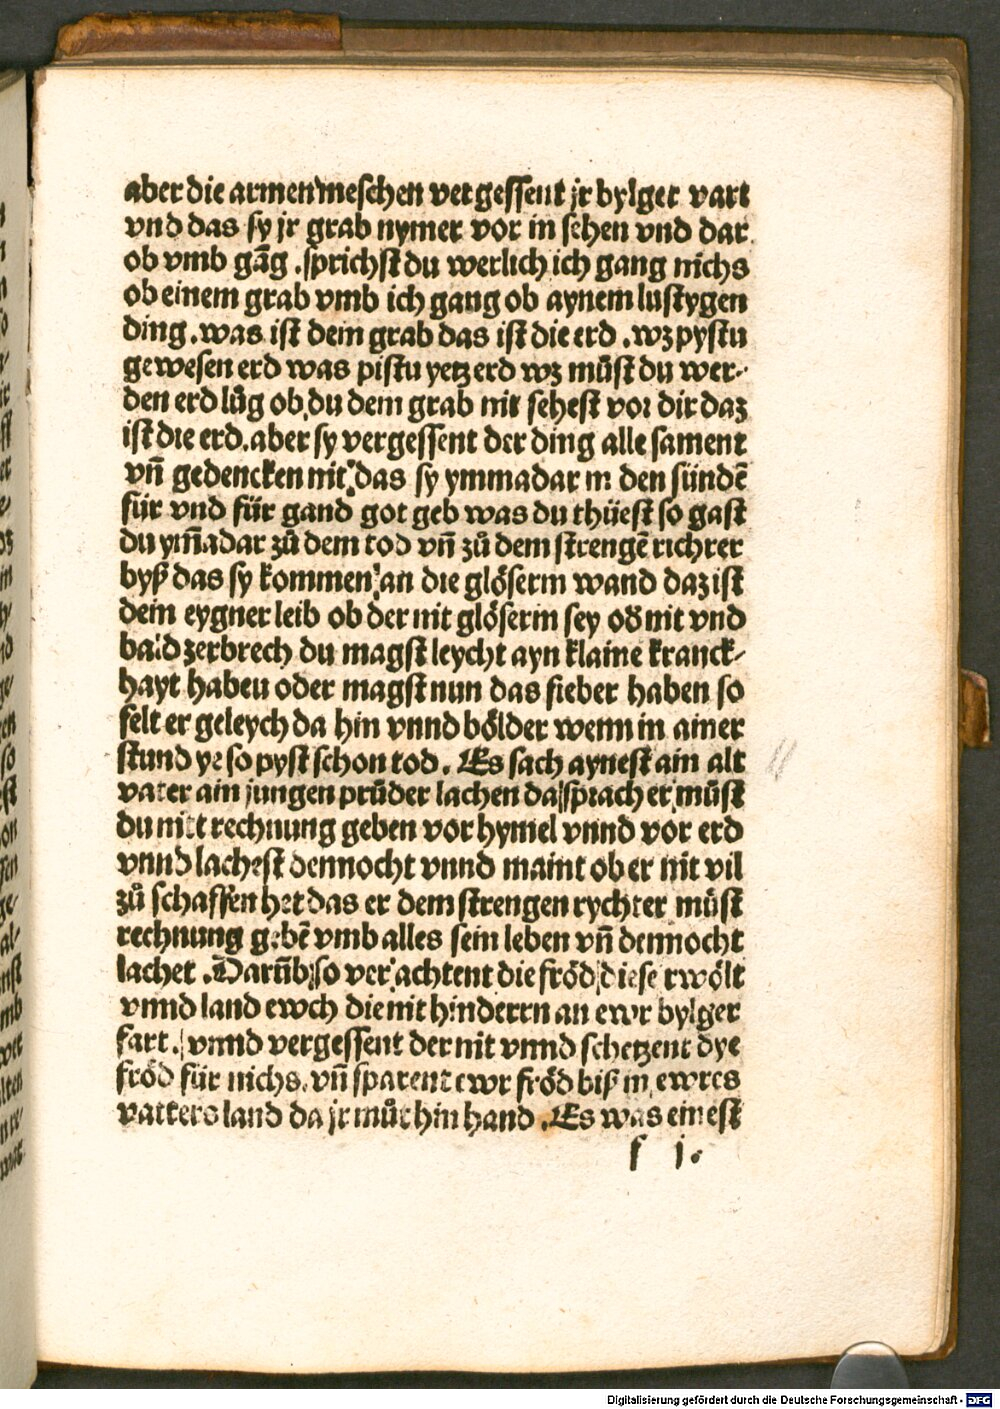 aber die armen meſchen vergeſſent jr bylger vart
vnd das ſy jr grab nymer vor in ſehen vnd dar
ob vmb gāg .ſprichſt du werlich ich gang nichs
ob einem grab vmb ich gang ob aynem luſtygen
ding .was iſt dein grab das iſt die erd .wz pyſtu
geweſen erd was piſtu yetz erd wz můſt du wer-
den erd lůg ob du dem grab nit ſeheſt vor dir daz
iſt die erd .aber ſy vergeſſent der ding alle ſament
vn̄ gedencken nit das ſy ymmadar in den ſündē
für vnd für gand got geb was du thüeſt ſo gaſt
du ym̄adar zů dem tod vn̄ zů dem ſtrengē richter
byß das ſy kommen an die glöſerin wand daz iſt
dein eygner leib ob der nit glöſerin ſey od̕ nit vnd
bald zerbrech du magſt leycht ayn klaine kranck-
hayt haben oder magſt nun das fieber haben ſo
felt er geleych da hin vnnd bölder wenn in ainer
ſtund ye ſo pyſt ſchon tod . Es ſach ayneſt ain alt
vater ain jungen průder lachen da ſprach er můſt
du nitt rechnung geben vor hymel vnnd vor erd
vnnd lacheſt dennocht vnnd maint ob er nit vil
zů ſchaffen het das er dem ſtrengen rychter můſt
rechnung gebē vmb alles ſein leben vn̄ dennocht
lachet .Darūb ſo verachtent die fröd dieſer wölt
vnnd land ewch die nit hinderrn an ewr bylger
fart . vnnd vergeſſent der nit vnnd ſchetzent dye
fröd für nichs .vn̄ ſparent ewr fröd biß in ewres
vatters land da jr můt hin hand .Es was eineſt
f j.
Digitalisierung gefördert durch die Deutsche Forschungsgemeinschaft - DFG